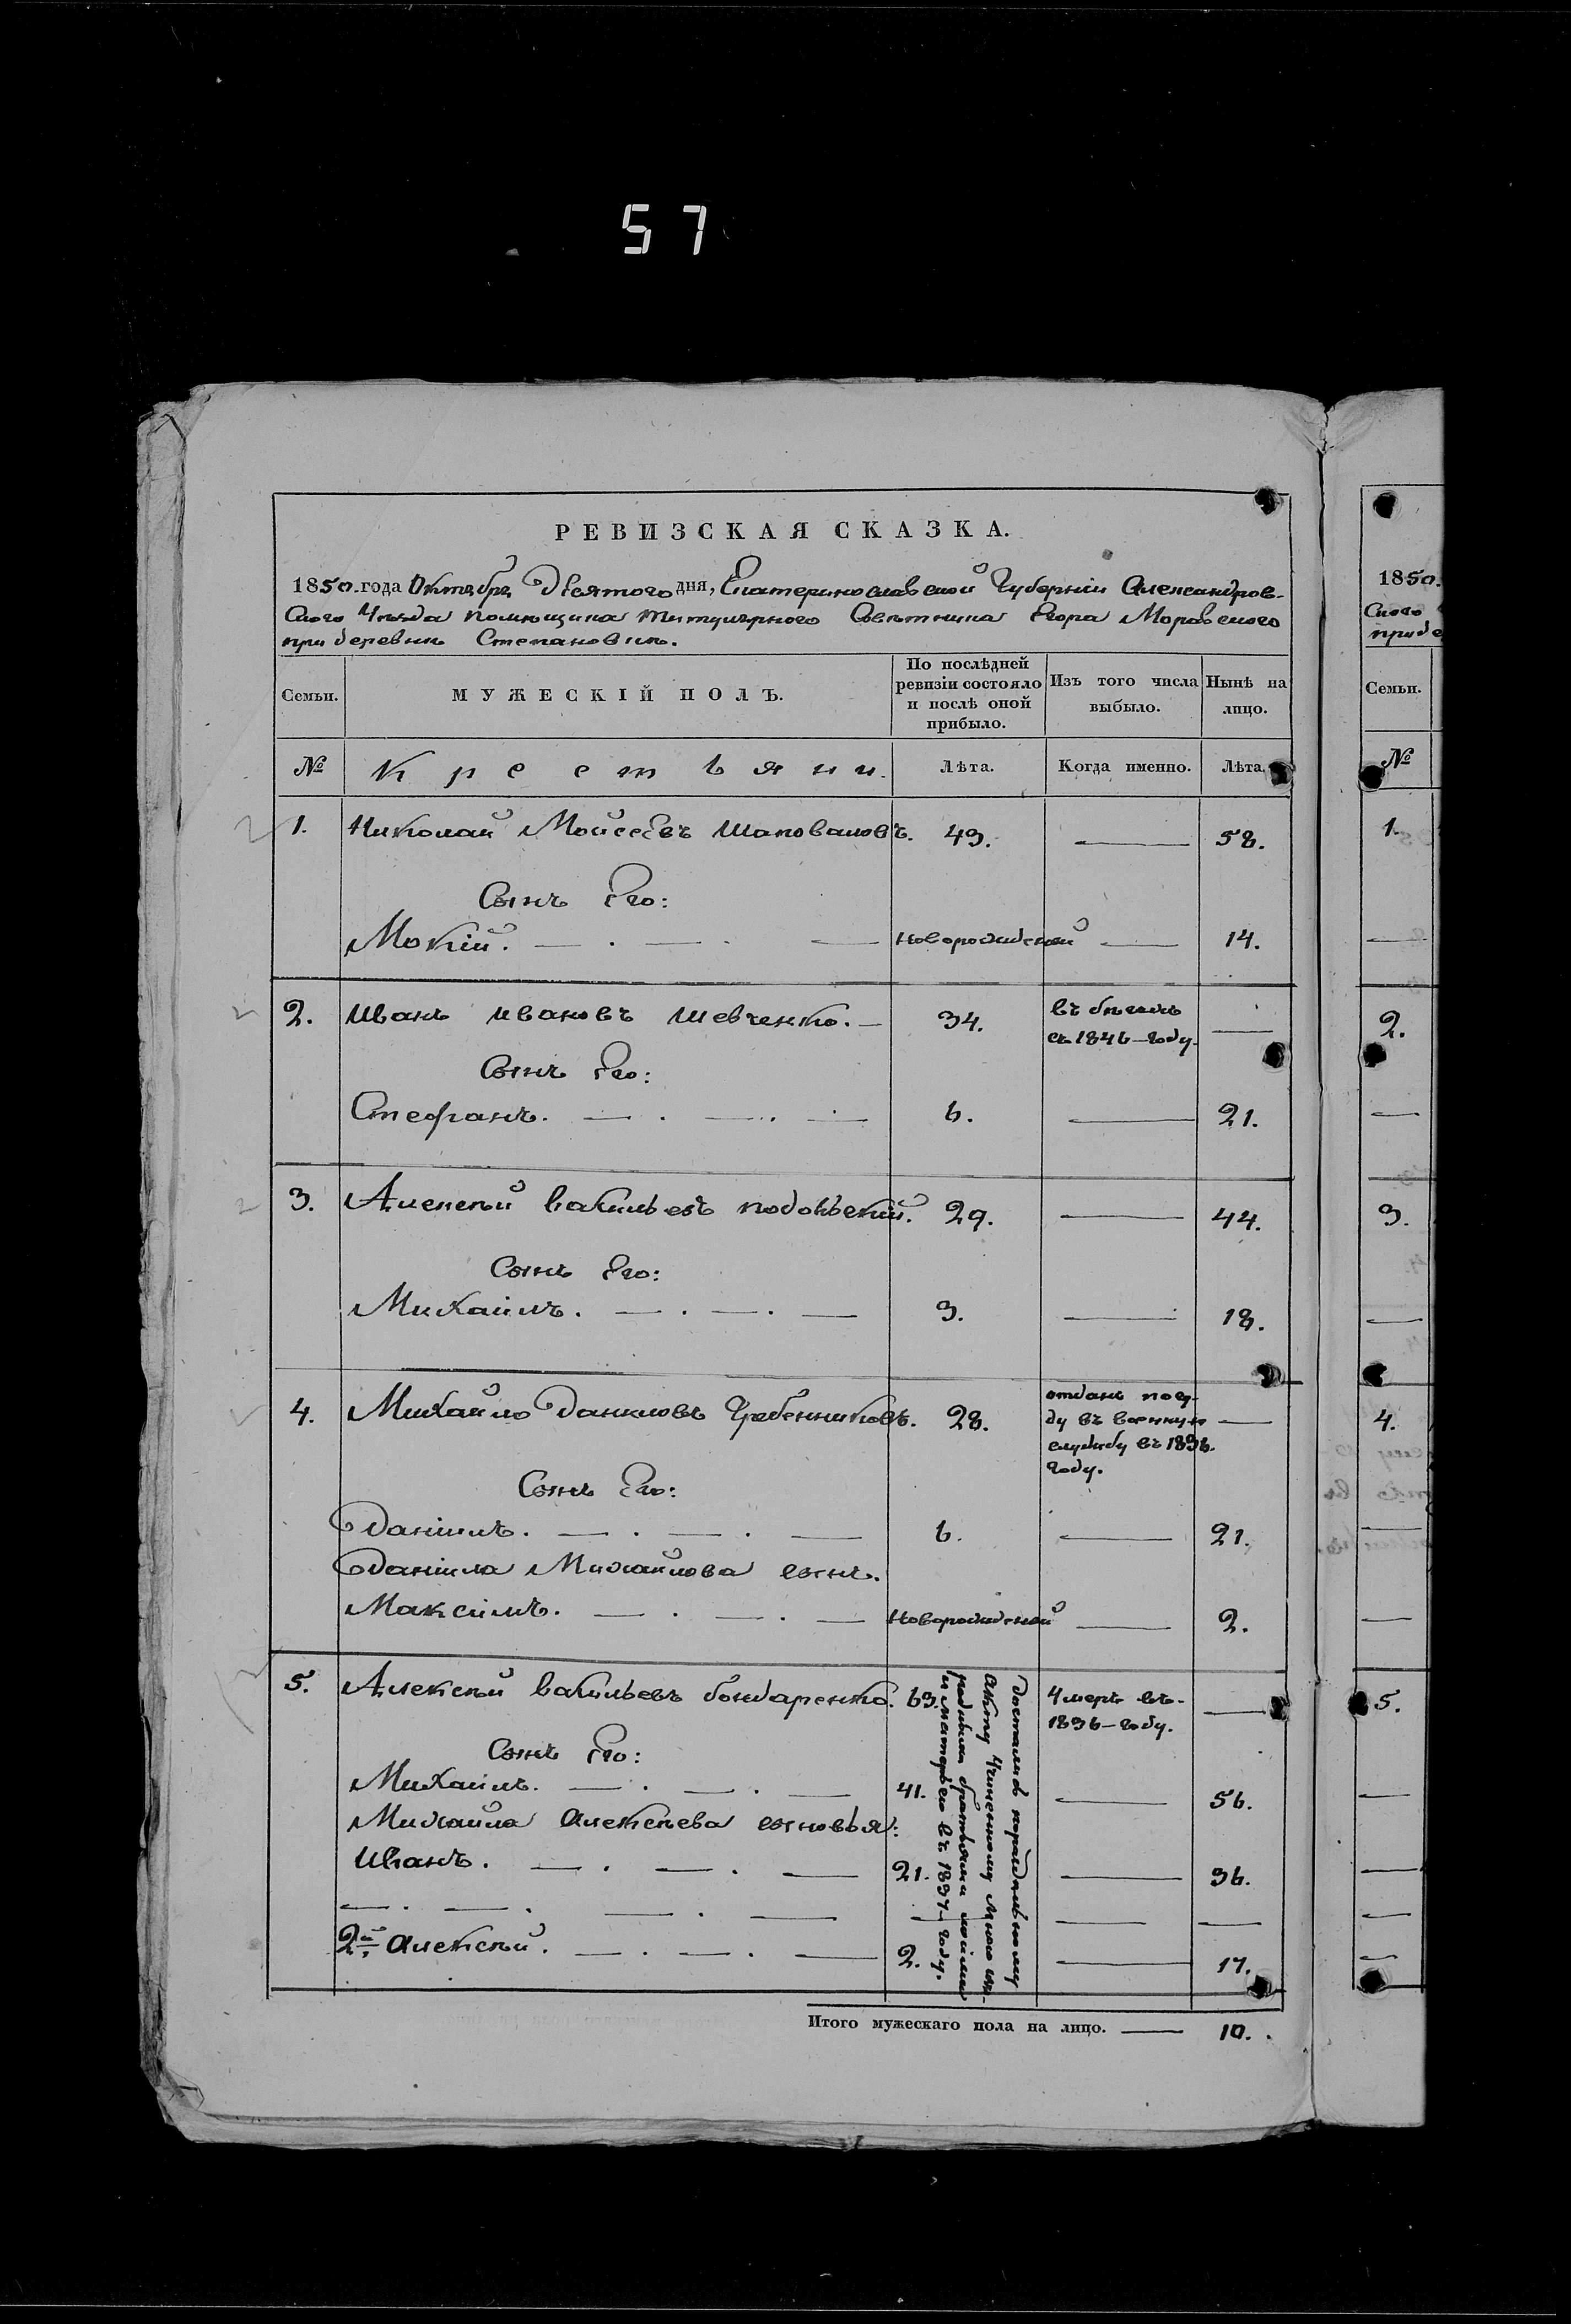 57
РЕВИЗСКАЯ СКАЗКА.
1850. года Октября Десятого дня, Екатеринославской Губернiи Александров-
ского Уѣзда помѣщика титулярного Совѣтника Егора Моравского
при деревнѣ Степановкѣ.
Семьи. МУЖЕСКІЙ ПОЛЪ. По послѣдней ревизіи состояло и послѣ оной прибыло. Изъ того числа выбыло. Нынѣ на лицо.
№ Крестьяни. Лѣта. Когда именно. Лѣта.
1. Николай Мойсеевъ Шаповаловъ. 43. — 58.
Сынъ Его:
Мокiй. — . — . — новорожденый — 14.
2. Иванъ Ивановъ Шевченко. — 34. въ бѣгахъ съ 1846 — году. —
Сынъ Его:
Стефанъ. — . — . — 6. — 21.
3. Алексѣй Васильевъ подольскiй. 29. — 44.
Сынъ Его:
Михаилъ. — . — . — 3. — 18.
4. Михайло Даниловъ Гребенниковъ. 28. отданъ въ военную службу въ 1836. году. —
Сынъ Его:
Данiилъ. — . — . — 6. — 21.
Данiила Михайлова сынъ.
Максимъ. — . — . — Новорожденый — 2.
5. Алексѣй Васильевъ бондаренко. 63. Умеръ въ — 1836 — году. —
Сынъ Его:
Михаилъ. — . — . — 41. — 56.
Михайла Алексѣева сыновья:
Иванъ. — . — . — 21. — 36.
— . — . — . — — — —
2й Алексѣй. — . — . — 2. — 17.
достались по раздѣльному
акту Учиненному мною съ
родными братьями моими
и матерью въ 1837 — году.
Итого мужескаго пола на лицо. — 10.
1850.
Ского
при де
Семьи.
№
1.
2.
3.
4.
5.